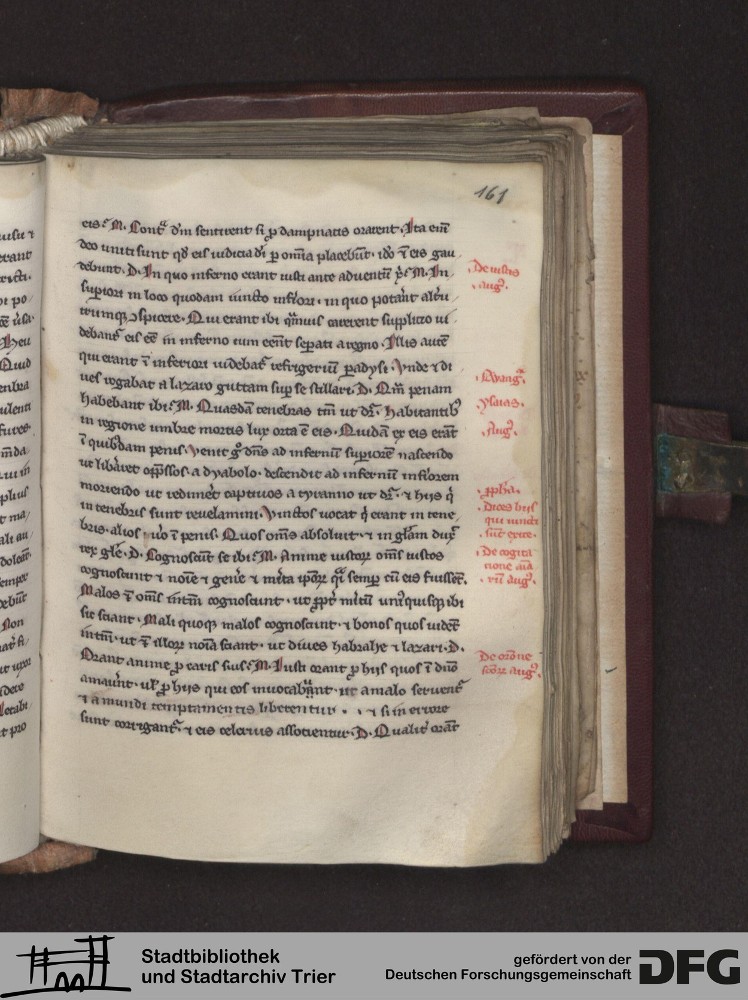 161
eis? M. Contª dm̄ sentirent si ꝓ dampnatis orarent. Ita em̄
deo uniti sunt qd eis iudicia dī ꝑ om̄ia placebūt. ido ī eis gau
debunt. D. In quo inferno erant iusti ante aduentū xp̄i. M. In
supiori in loco quodam iuncto infiori. in quo potant altu
trumqꝫ ꝯspicere. Qui erant ibi qͣmuis carerent supplicio ui
debant eis eē in inferno cum eent sepati a regno. Illis autē
qui erant ī inferiori uidebat refrigeriū padysi. Vnde ⁊ di
ues rogabat a lazaro guttam sup se stillari. D. Qm̄ penam
habebant ibi? M. Quasdā tenebras tm̄ ut dr̄. habitantibꝰ
in regione umbre mortis lux orta ē eis. Quidā ex eis erāt
ī quibdam penis. Venit gͦ dns ad infernū supiorē nascendo
ut libaret opssos a dyabolo. descendit ad infernū infiorem
moriendo ut redimet captiuos a tyranno ut dr̄. ⁊ hijs qͥ
in tenebris sunt reuelamini. Vinctos uocat qͥ erant in tene
bris. alios uͦo ī penis. Quos oms absoluit. ⁊ in glam dux
rex gle. D. Cognoscūt se ibi? M. Anime iustoꝝ oms iustos
cognoscunt ⁊ noīe ⁊ gene ⁊ mita ipoꝝ qͣi semp cū eis fuissēt.
Malos ꝟ oms intim cognoscunt. ut ꝓpt mitū unꝰquisqꝫ ibi
sic sciant. Mali quoqꝫ malos cognoscunt. ⁊ bonos quos uidēt
intm̄. ut ꝟ illoꝝ noīa sciant. ut diues habrahe ⁊ lazari. D.
Orant anime ꝓ caris suis? M. Iusti orant ꝓ hijs quos ī dno
amauīt. ul ꝓ hijs qui eos inuocabant. ut a malo seruent
⁊ a mundi temptamentis liberentur. ⁊ si in errore
sunt corrigant. ⁊ eis celerius associentur. D. Qualit orāt
De iustis
augꝰ.
Ewangͣ.
ysaias.
Augꝰ.
ꝓpha.
Dices hijs
qui uincti
sūt exite.
De cogita
tione aīa
rū augꝰ.
De orōne
scōꝝ augꝰ.
Stadtbibliothek
und Stadtarchiv Trier
gefördert von der
Deutschen Forschungsgemeinschaft
DFG